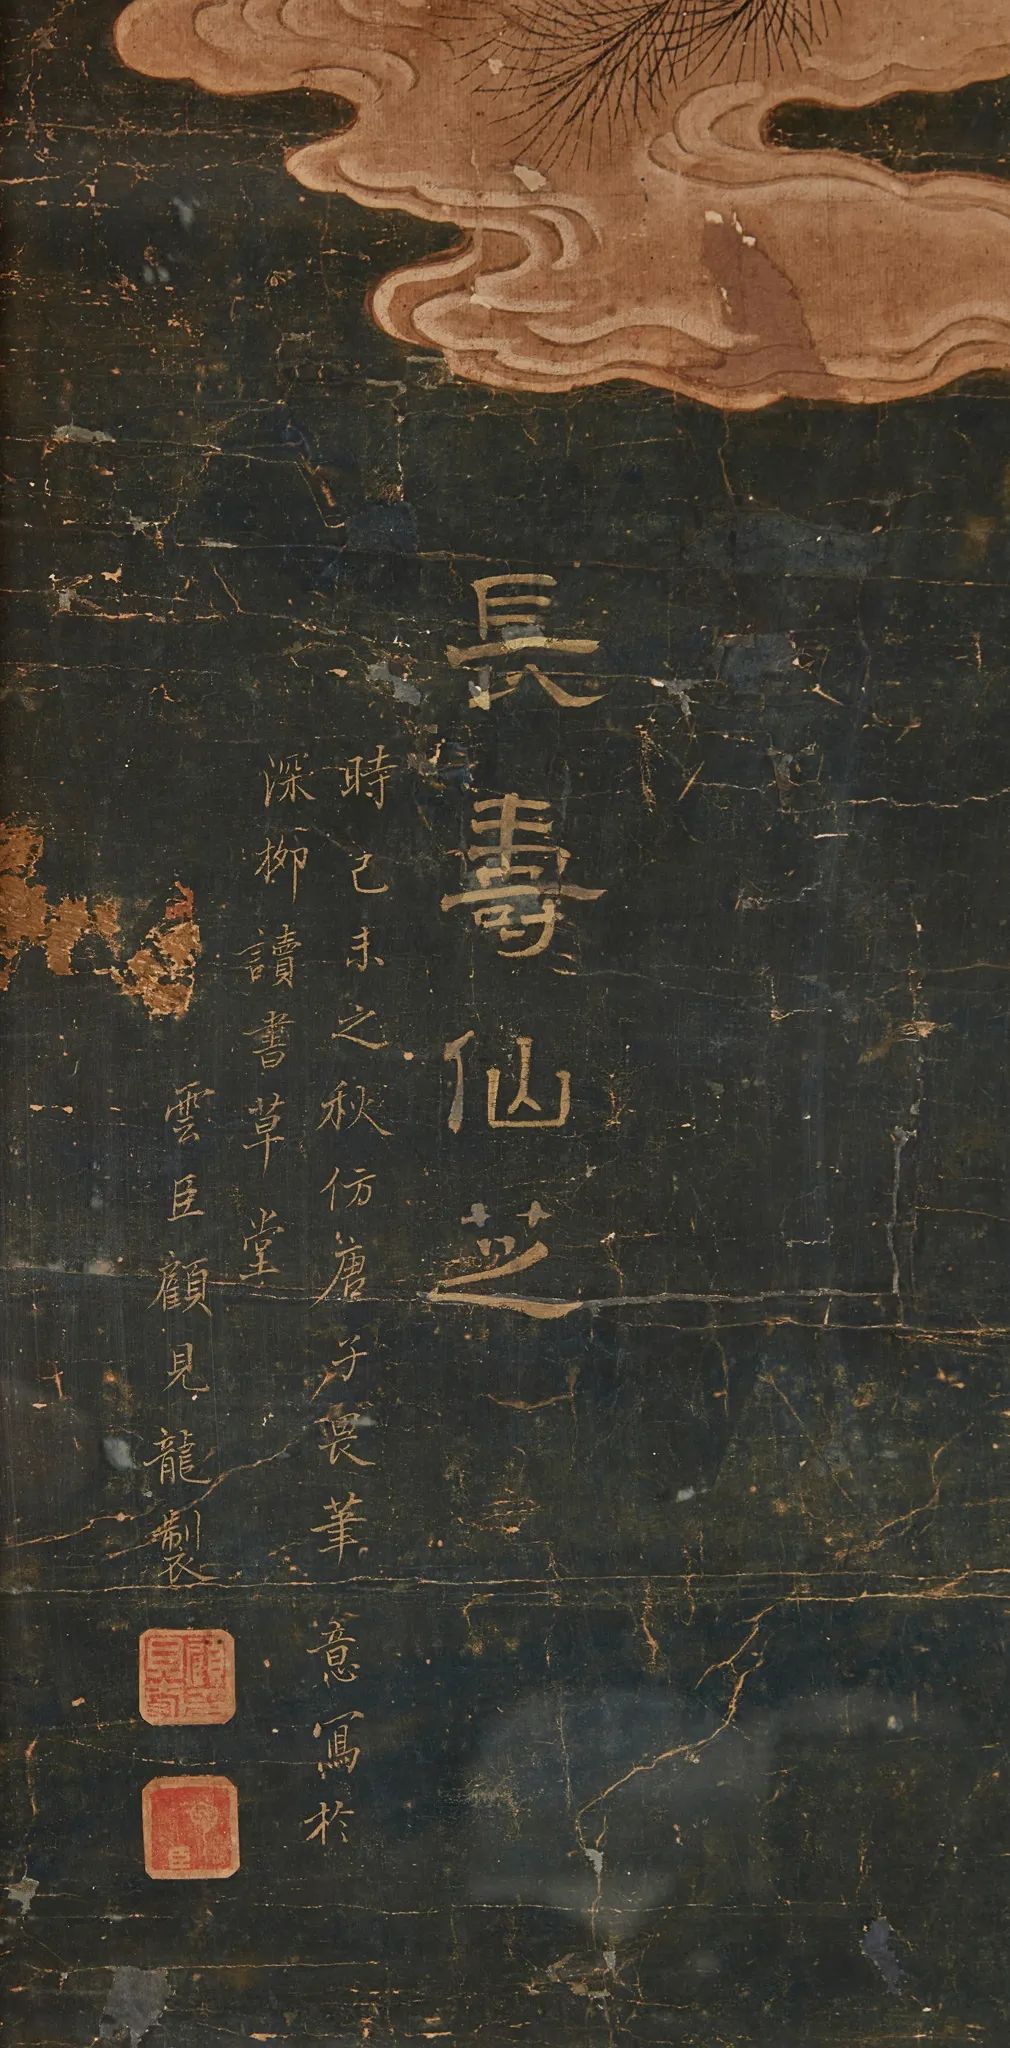 長壽仙芝
時己未之秋仿唐子畏筆意寫於
深柳讀書草堂
雲臣顧見龍製